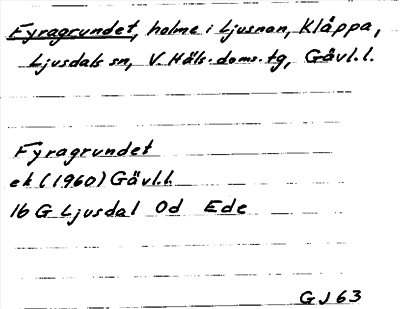 Fyragrundet, holme i Ljusnan, Klåppa,
Ljusdals sn, V. Häls. doms. tg, Gävl. l.
Fyragrundet
ek (1960) Gävl.l.
16 G Ljusdal Od Ede
GJ 63